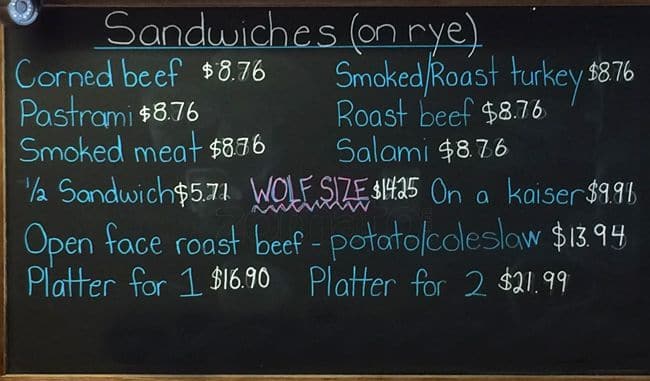 Sandwiches (on rye)
Corned beef $8.76 Smoked/Roast turkey $8.76
Pastrami $8.76 Roast beef $8.76
Smoked meat $8.76 Salami $8.76
1/2 Sandwich $5.71 WOLF SIZE $14.25 On a kaiser $9.91
Open face roast beef - potato/coleslaw $13.94
Platter for 1 $16.90 Platter for 2 $21.99